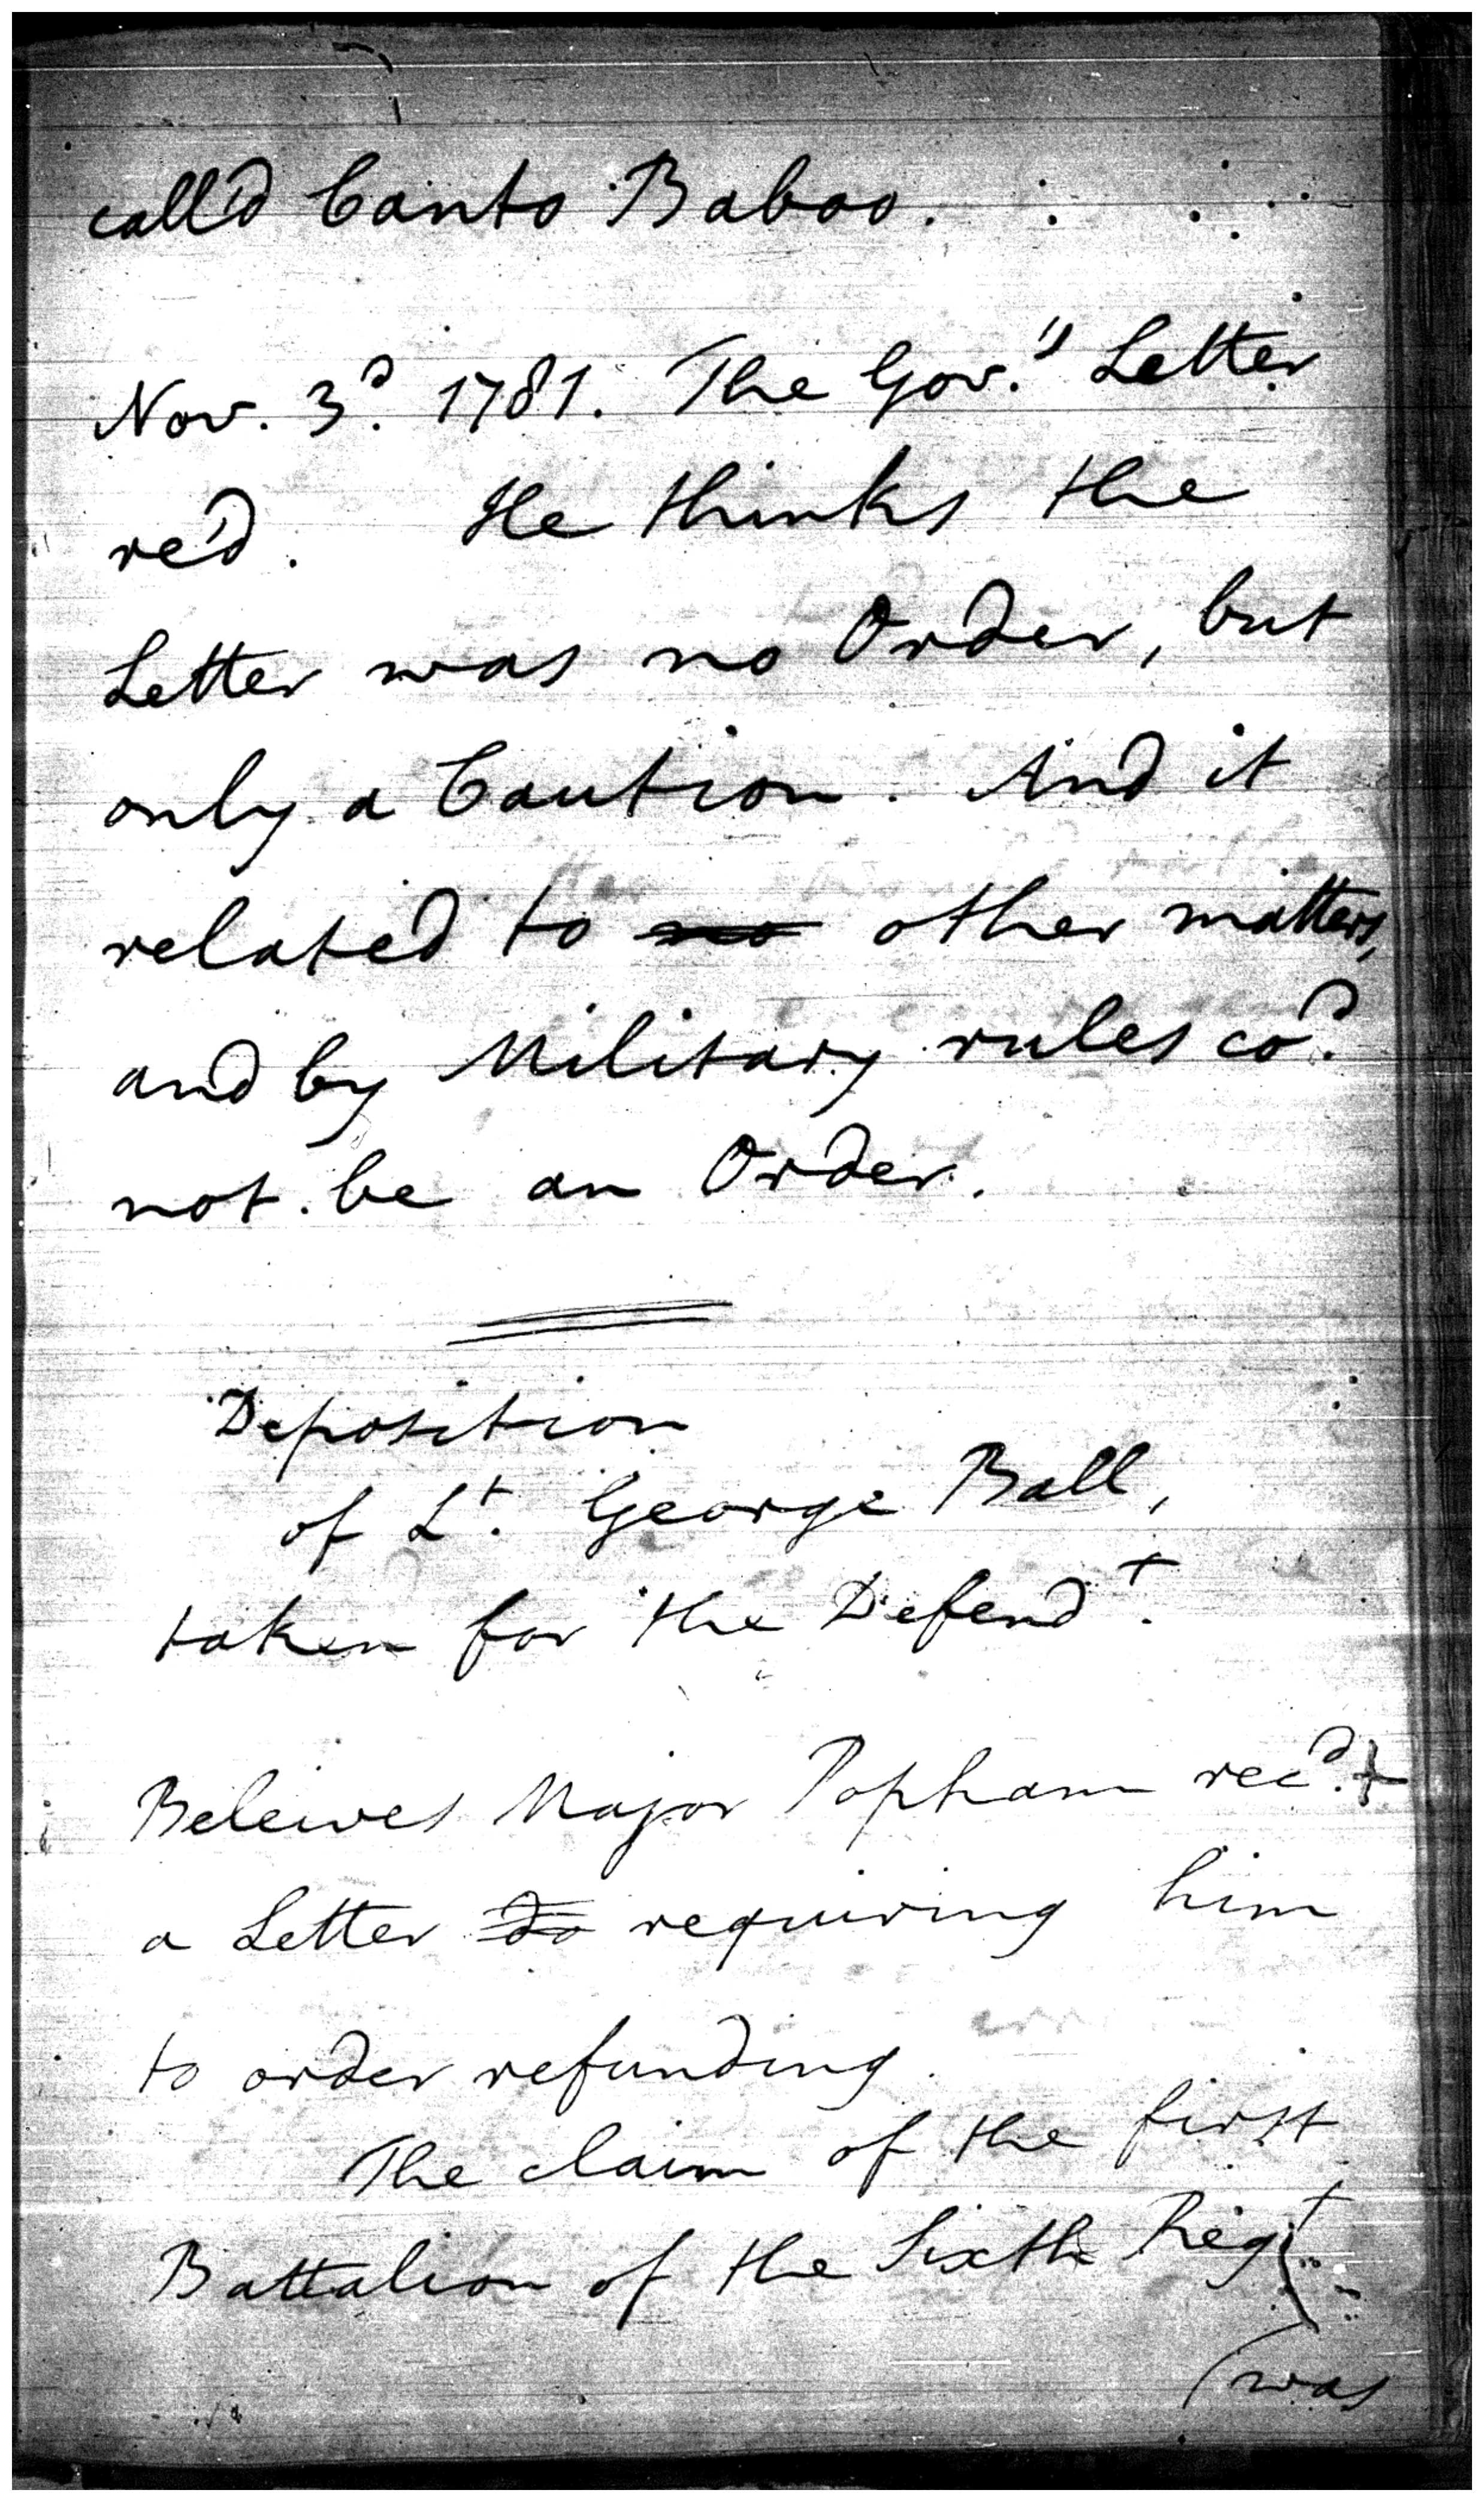 call'd Canto Baboo.
Nov. 3d. 1781. The Gov.'s Letter
re'd. He thinks the
Letter was no Order, but
only a Caution. And it
related to no other matters,
and by Military rules cod.
not be an Order.
Deposition
of Lt. George Ball,
taken for the Defendt.
Beleives Major Popham recd. +
a Letter to requiring him
to order refunding.
The claim of the first
Battalion of the Sixth Regt.
(was